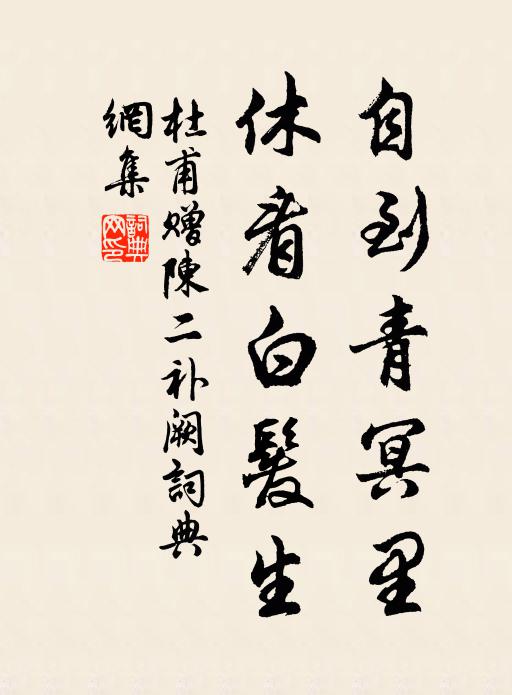 自到青冥里
休看白髮生
杜甫赠陳二补阙詞典
網集
詞典
网印